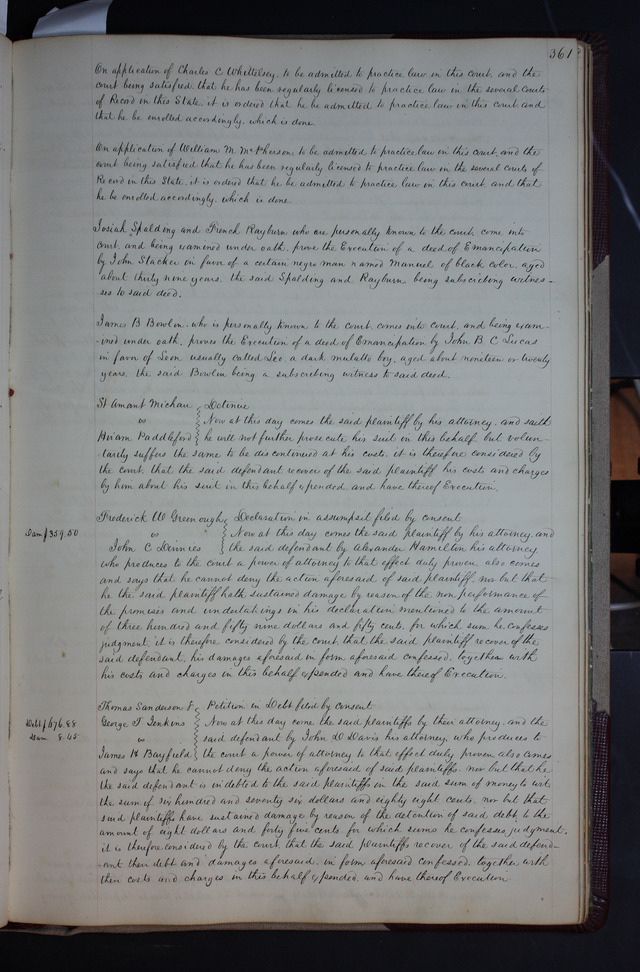 361
On application of Charles C. Whittelsey, to be admitted to practice law in this court, and the
court being satisfied that he has been regularly licensed to practice law in the several courts
of Record in this State, it is ordered that he be admitted to practice law in this court and
that he be enrolled accordingly, which is done.
On application of William M. McPherson, to be admitted to practice law in this court, and the
court being satisfied that he has been regularly licensed to practice law in the several courts of
Record in this State, it is ordered that he be admitted to practice law in this court and that
he be enrolled accordingly, which is done
Josiah Spalding and French Rayburn who are personally known to the court, come into
court, and being examined under oath, prove the Execution of a deed of Emancipation
by John Stacker in favor of a certain negro man named Manuel of black color, aged
about thirty nine years, the said Spalding and Rayburn being subscribing witnes-
ses to said deed.
James B Bowlin, who is personally known to the court, comes into court, and being exam-
-ined under oath, proves the Execution of a deed of Emancipation by John B C Lucas
in favor of Leon usually called Leo, a dark mulatto boy, aged about nineteen or twenty
years, the said Bowlin being a subscribing witness to said deed.
St Amant Michau Detinue
vs Now at this day comes the said plaintiff by his attorney, and saith
Hiram Paddleford he will not further prosecute his suit in this behalf but volun-
-tarily suffers the same to be discontinued at his costs, it is therefore considered by
the court, that the said defendant recover of the said plaintiff his costs and charges
by him about his suit in this behalf expended and have thereof Execution.
Frederick W Greenough Declaration in assumpsit filed by consent
Dam $359.50 vs Now at this day comes the said plaintiff by his attorney, and
John C Dinnies the said defendant by Alexander Hamilton his attorney
who produces to the court a power of attorney to that effect duly proven also comes
and says that he cannot deny the action aforesaid of said plaintiff, nor but that
he the said plaintiff hath sustained damage by reason of the non performance of
the promises and undertakings in his declaration mentioned to the amount
of three hundred and fifty nine dollars and fifty cents, for which sum he confesses
judgment, it is therefore considered by the court, that the said plaintiff recover of the
said defendant, his damages aforesaid in form aforesaid confessed, together with
his costs and charges in this behalf expended and have thereof Execution.
Thomas Sanderson & Petition in Debt filed by consent
Debt $676.88 George T Jenkins Now at this day come the said plaintiffs by their attorney, and the
Dam 8.45 vs said defendant by John D Davis his attorney, who produces to
James H Bayfield the court a power of attorney to that effect duly proven also comes
and says that he cannot deny the action aforesaid of said plaintiffs, nor but that he
the said defendant is indebted to the said plaintiffs in the said sum of money to wit
the sum of six hundred and seventy six dollars and eighty eight cents, nor but that
said plaintiffs have sustained damage by reason of the detention of said debt, to the
amount of eight dollars and forty five cents for which sums he confesses judgment,
it is therefore considered by the court, that the said plaintiffs recover of the said defend-
-ant their debt and damages aforesaid, in form aforesaid confessed, together with
their costs and charges in this behalf expended, and have thereof Execution.